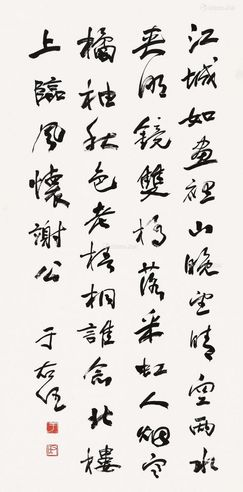 江城如畫裡山晚望晴空兩水
夾明鏡雙橋落采虹人烟寒
橘柚秋色老梧桐誰念北樓
上臨風懷謝公
于右任